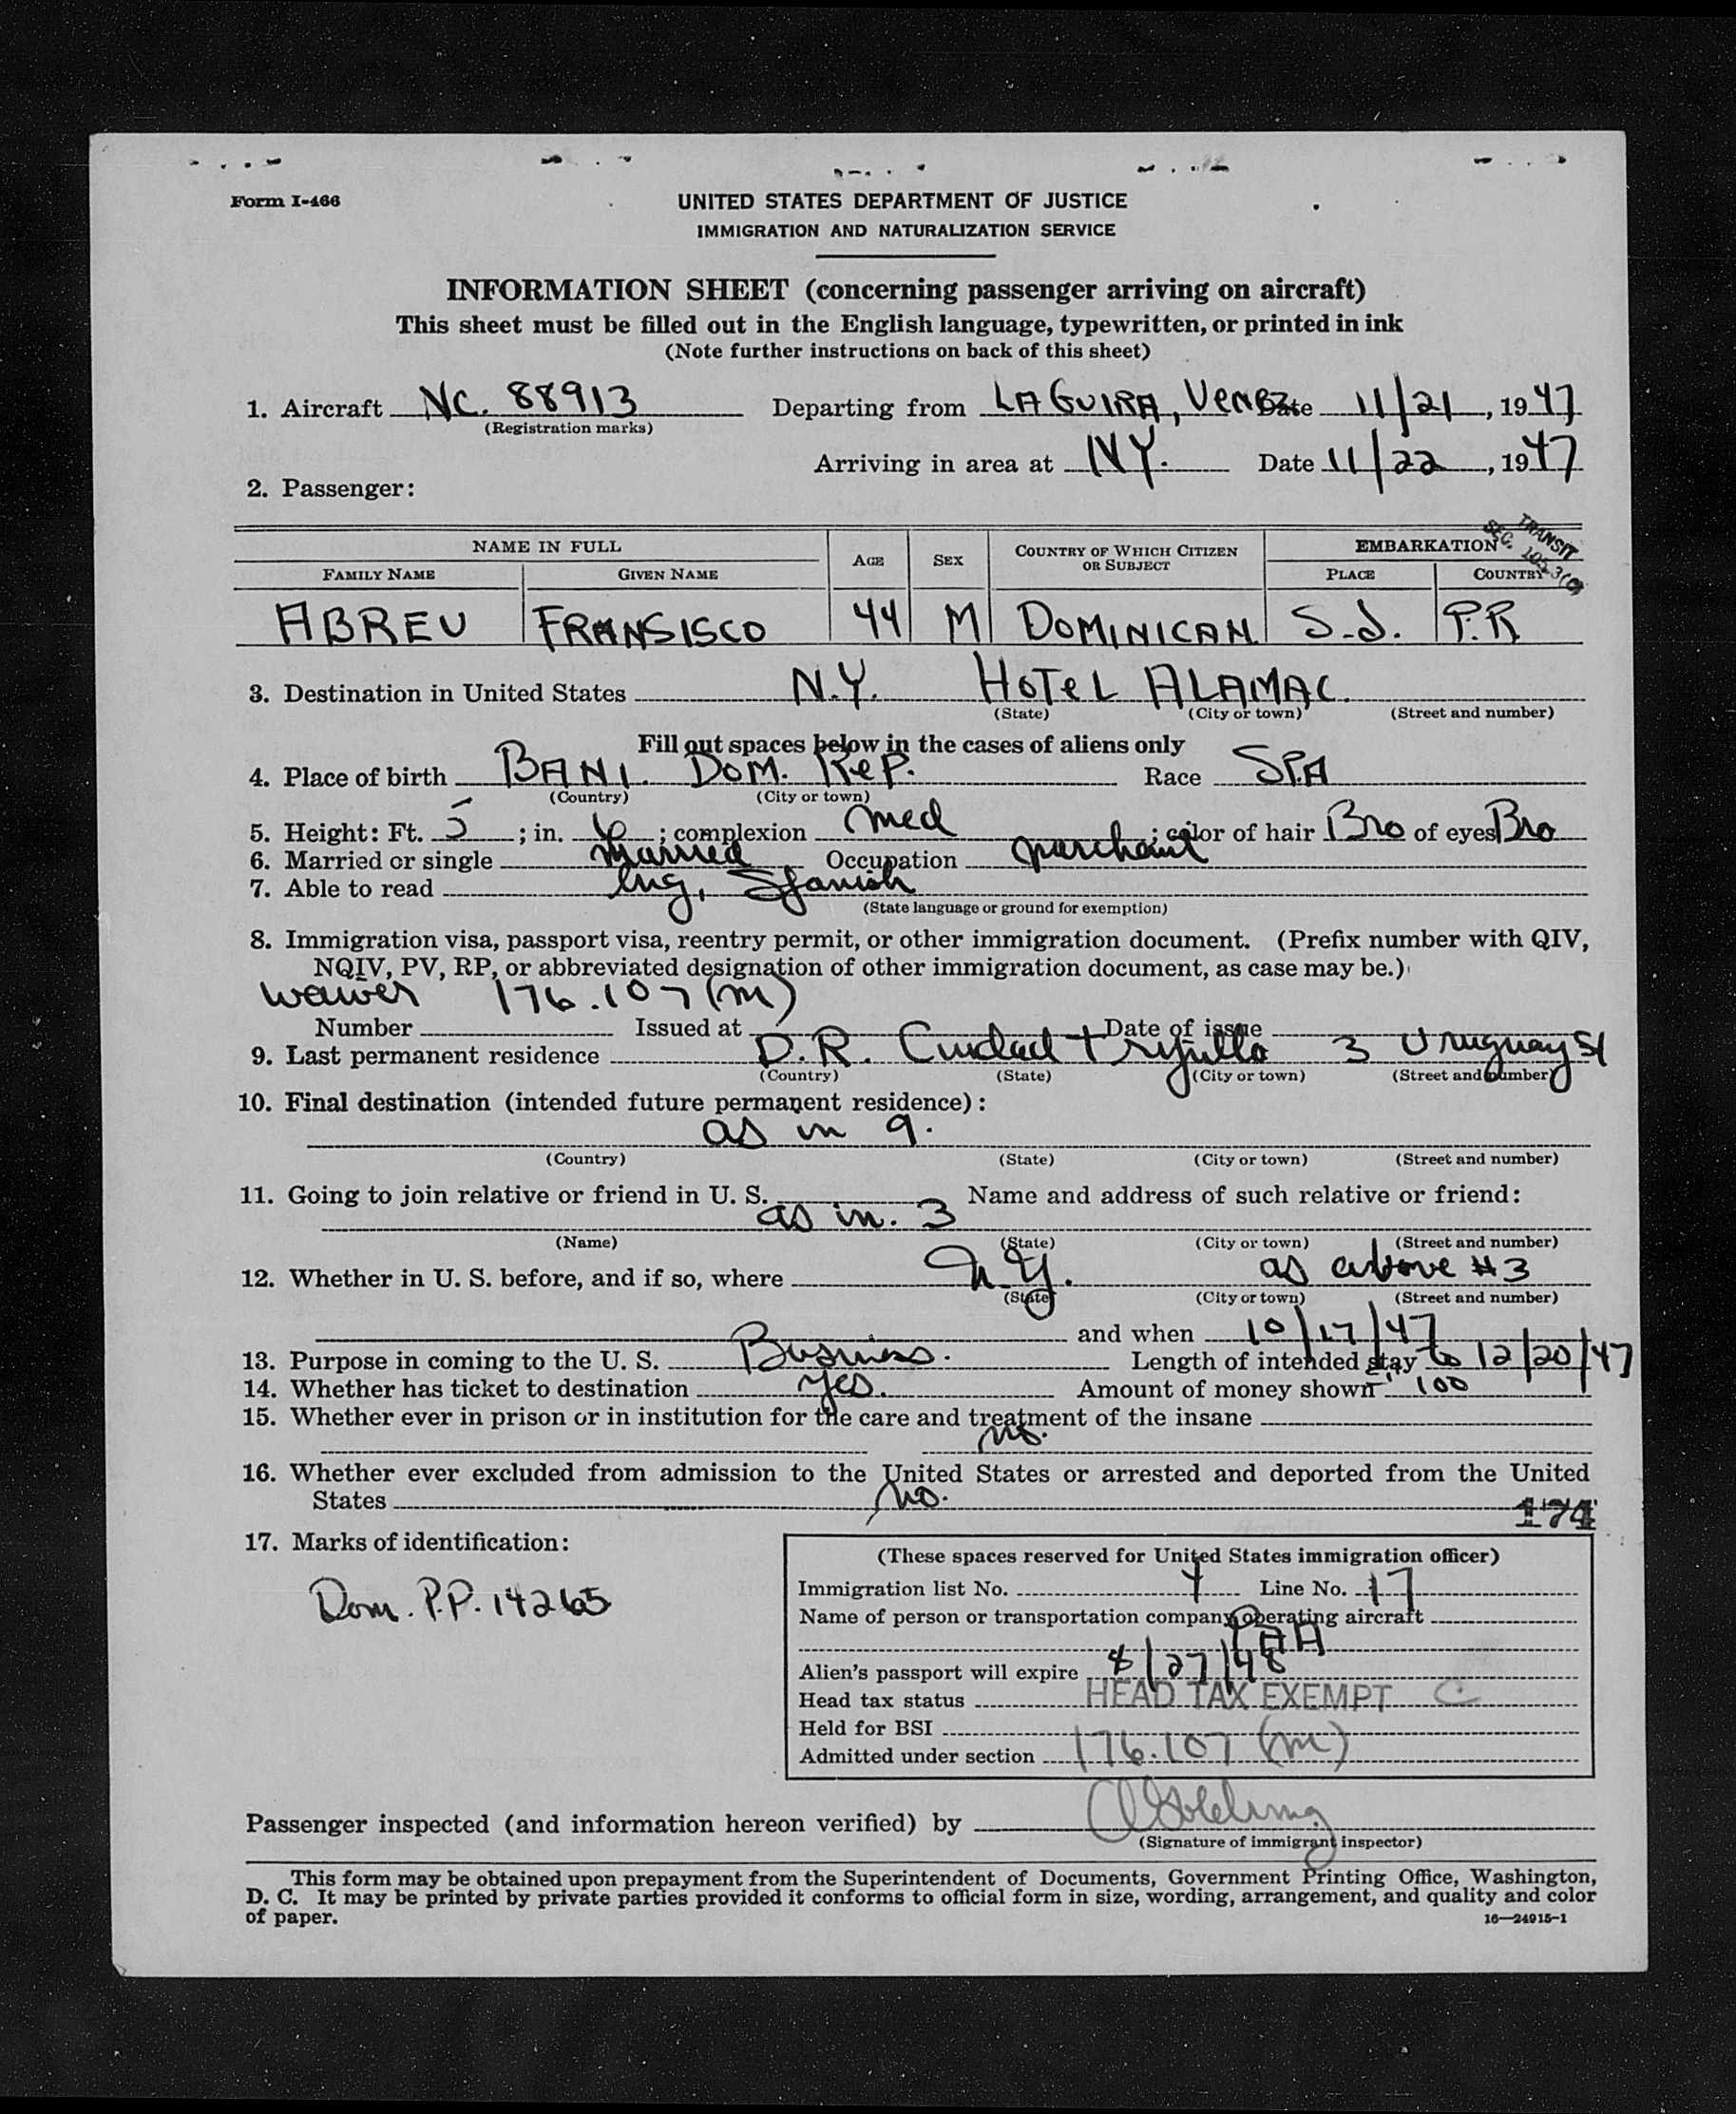 Form I-466
UNITED STATES DEPARTMENT OF JUSTICE
IMMIGRATION AND NATURALIZATION SERVICE
INFORMATION SHEET (concerning passenger arriving on aircraft)
This sheet must be filled out in the English language, typewritten, or printed in ink
(Note further instructions on back of this sheet)
1. Aircraft NC. 88913 Departing from LA GUIRA, VENEZ Date 11/21, 1947
(Registration marks)
Arriving in area at NY. Date 11/22, 1947
2. Passenger:
TRANSIT
SEC. 105.3(C)
NAME IN FULL AGE SEX COUNTRY OF WHICH CITIZEN OR SUBJECT EMBARKATION
FAMILY NAME GIVEN NAME PLACE COUNTRY
ABREU FRANSISCO 44 M DOMINICAN S.J. P.R
3. Destination in United States N.Y. HOTEL ALAMAC.
(State) (City or town) (Street and number)
Fill out spaces below in the cases of aliens only
4. Place of birth BANI. DOM. REP. Race SPA
(Country) (City or town)
5. Height: Ft. 5; in. 6; complexion med; color of hair Bro of eyes Bro
6. Married or single married Occupation merchant
7. Able to read Eng, Spanish
(State language or ground for exemption)
8. Immigration visa, passport visa, reentry permit, or other immigration document. (Prefix number with QIV,
NQIV, PV, RP, or abbreviated designation of other immigration document, as case may be.)
waiver 176.107 (m)
Number Issued at Date of issue
9. Last permanent residence D.R. Ciudad Trujillo 3 Uruguay St
(Country) (State) (City or town) (Street and number)
10. Final destination (intended future permanent residence):
as in 9.
(Country) (State) (City or town) (Street and number)
11. Going to join relative or friend in U. S. Name and address of such relative or friend:
as in. 3
(Name) (State) (City or town) (Street and number)
12. Whether in U. S. before, and if so, where N.Y. as above #3
(State) (City or town) (Street and number)
and when 10/17/47
13. Purpose in coming to the U. S. Business. Length of intended stay to 12/20/47
14. Whether has ticket to destination yes. Amount of money shown 100
15. Whether ever in prison or in institution for the care and treatment of the insane
no.
16. Whether ever excluded from admission to the United States or arrested and deported from the United
States no.
174
17. Marks of identification:
Dom. P.P. 14265
(These spaces reserved for United States immigration officer)
Immigration list No. 4 Line No. 17
Name of person or transportation company operating aircraft
PAA
Alien's passport will expire 8/27/48
Head tax status HEAD TAX EXEMPT C
Held for BSI
Admitted under section 176.107 (m)
Passenger inspected (and information hereon verified) by
(Signature of immigrant inspector)
This form may be obtained upon prepayment from the Superintendent of Documents, Government Printing Office, Washington,
D. C. It may be printed by private parties provided it conforms to official form in size, wording, arrangement, and quality and color
of paper.
16—24915-1